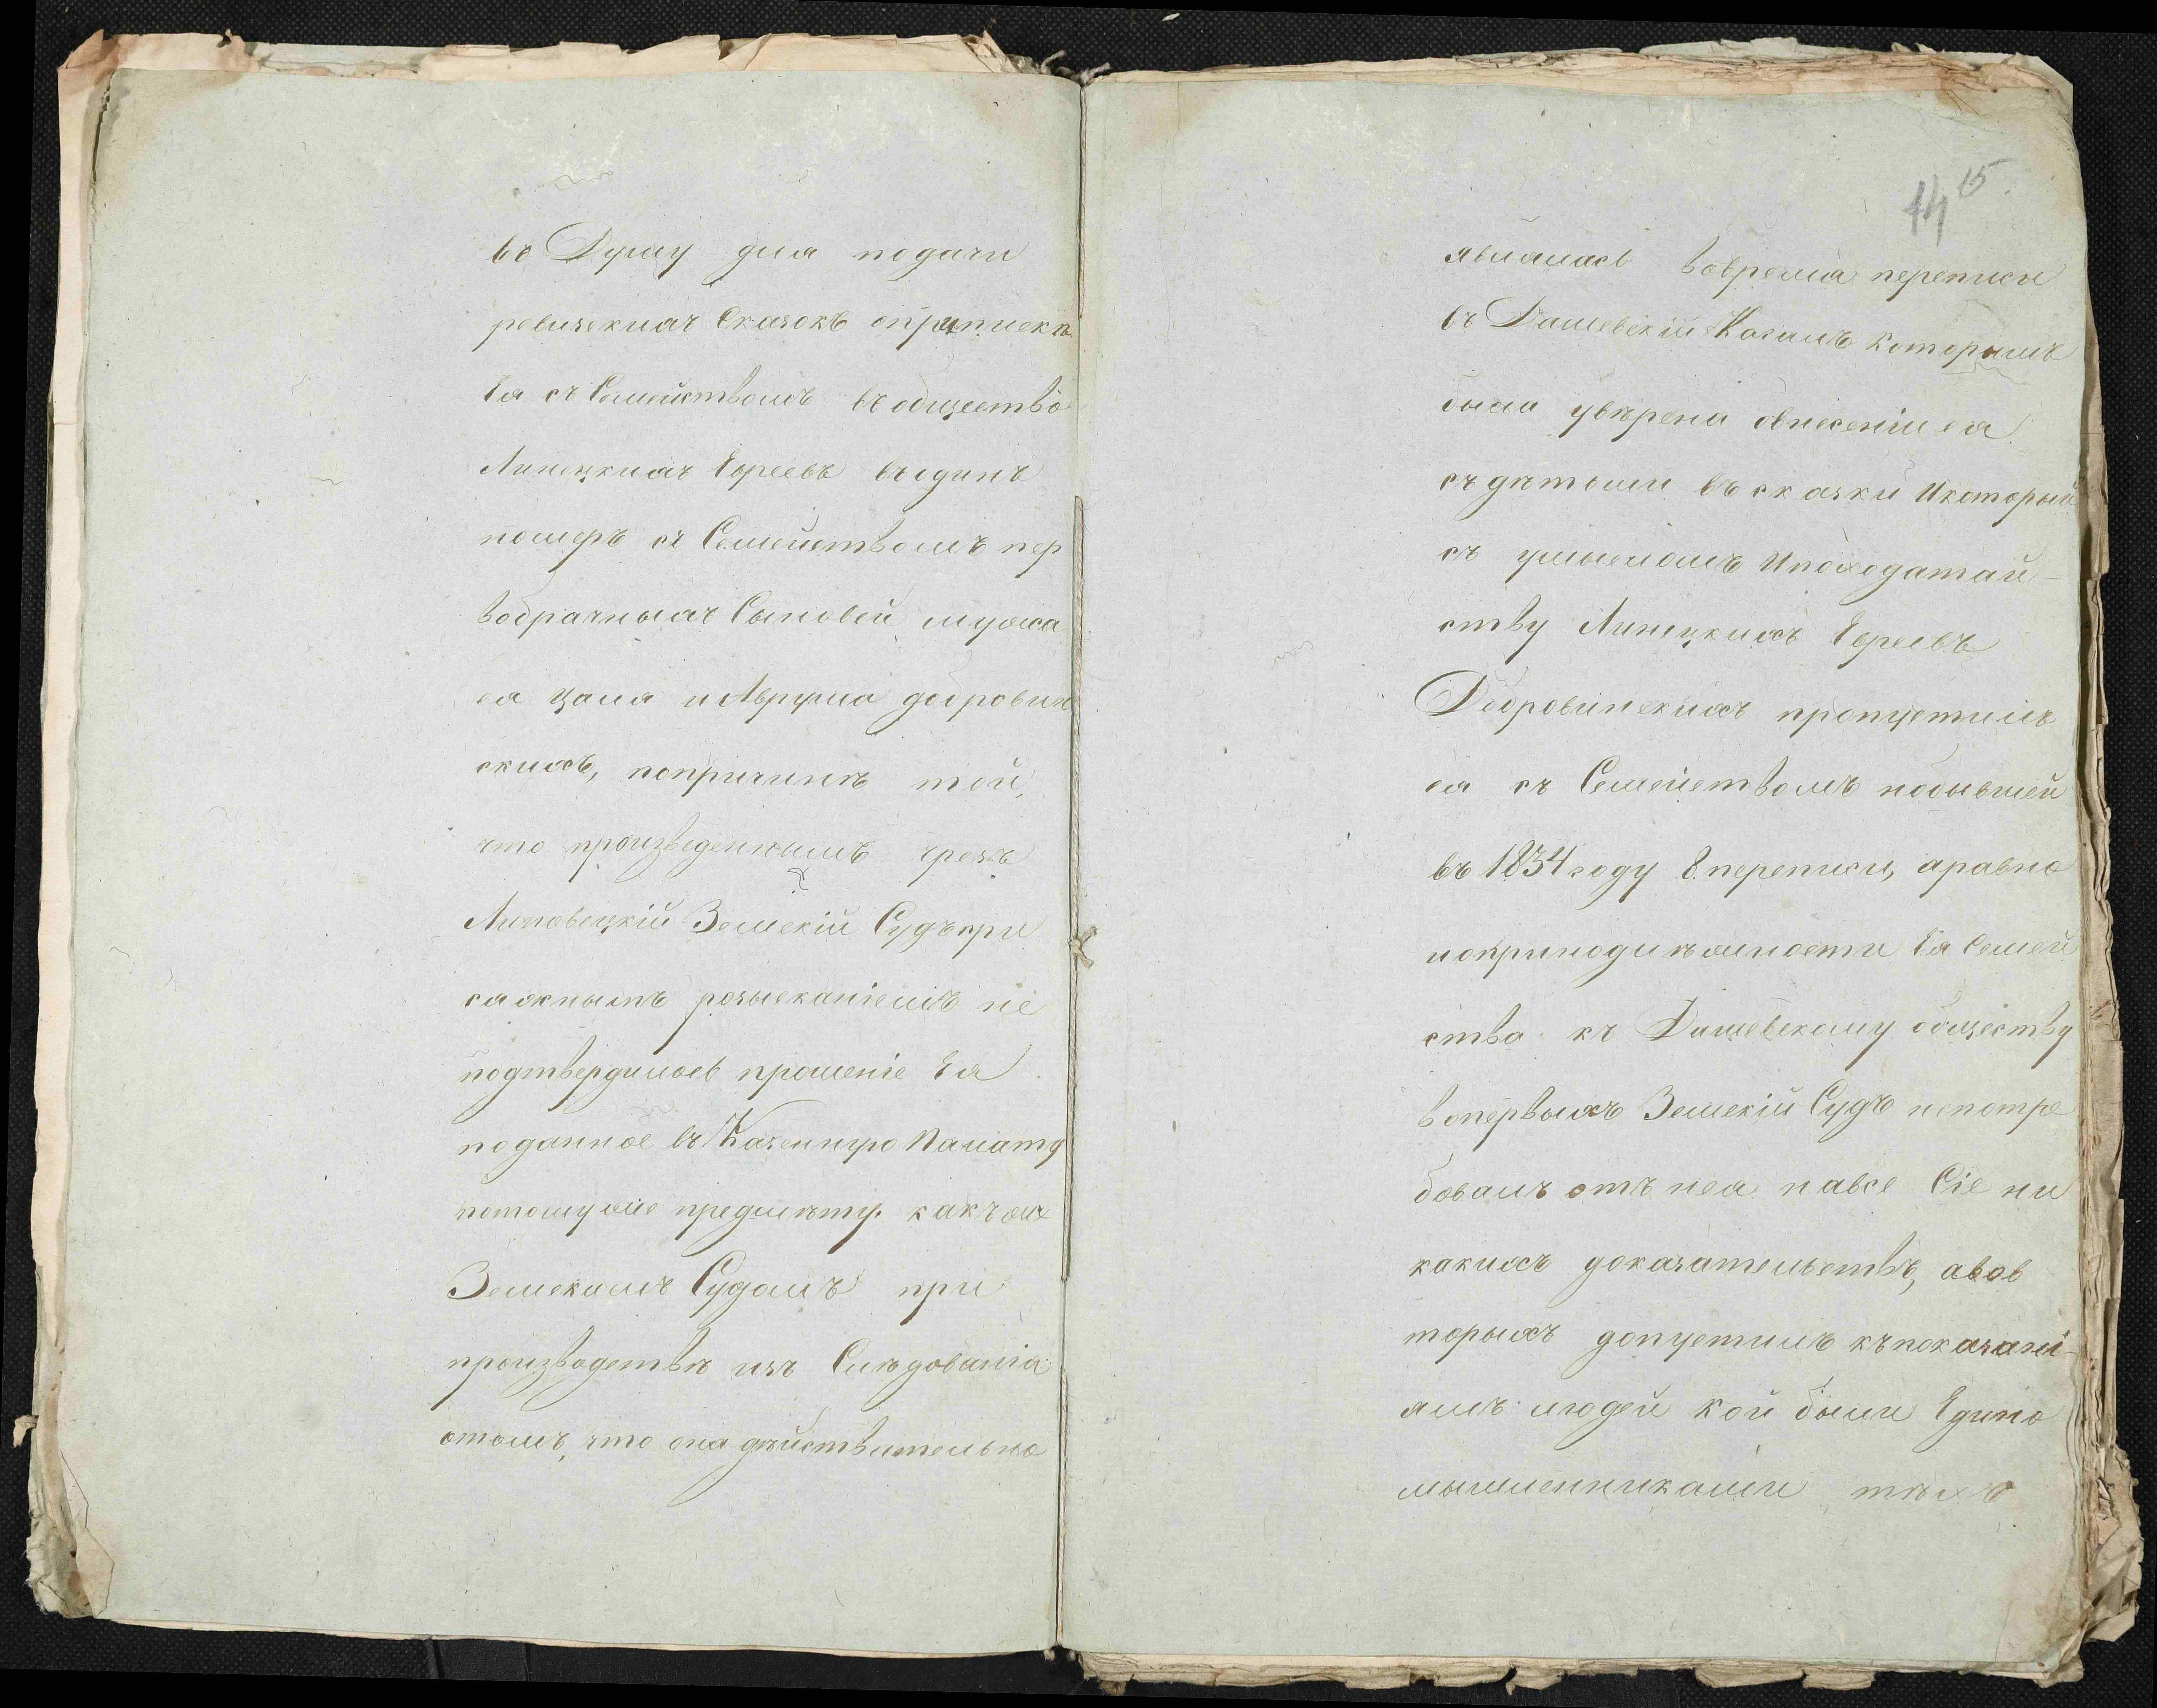 въ Думу для подачи
ревизскихъ Сказокъ оприпискѣ
Ея съ Семействомъ въ общество
Линецкихъ Евреевъ въодинъ
номеръ съ Семействомъ пер
вобрачныхъ Сыновей мужа
ея Цаля и Аврума добровин
скихъ, попричинѣ той,
что произведеннымъ чрезъ
Липовецкій Земскій Судъ при
сяжнымъ розысканіемъ не
подтвердилось прошеніе Ея
поданное въ Казенную Палату
потомуже предмѣту какъ же
Земскимъ Судомъ при
производствѣ изъ Слѣдованія
отомъ, что она дѣйствительно
14 15
являлась вовремя переписи
въ Дашевскій Кагалъ которымъ
была увѣрена овнесеніи ея
съ дѣтьми въ сказки Икоторый
съ умысломъ Ипоходатай-
ству Линецкихъ Евреевъ
Добровинскихъ пропустилъ
ея съ Семействомъ побывшей
въ 1834 году 8. переписи, аравно
ипринодлѣжности Ея Семей
ства къ Дашевскому обществу
вопервыхъ Земскій Судъ непотре
бовалъ отъ нея навсе Сіе ни
какихъ доказательствъ, авов
торыхъ допустилъ къпоказані-
ямъ людей кой были Едино
мышленниками тѣхъ